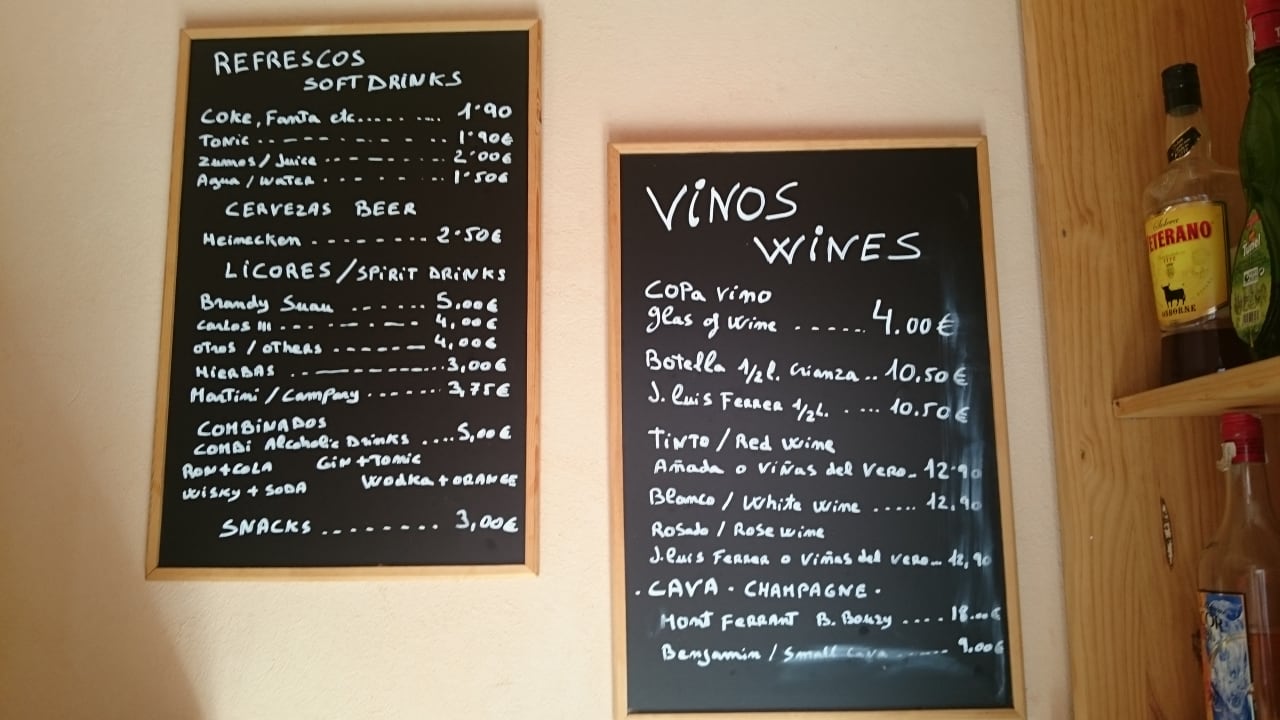 REFRESCOS
SOFT DRINKS
Coke, Fanta etc......... 1'90
Tonic.......... 1'90€
Zumos / Juice .......... 2'00€
Agua / water .......... 1'50€
CERVEZAS BEER
Heinecken ......... 2'50€
LICORES / SPIRIT DRINKS
Brandy Suau ....... 5,00€
Carlos III .......... 4,00€
otros / others ........ 4,00€
HIERBAS .......... 3,00€
Martini / Campary ....... 3,75€
COMBINADOS
COMBI Alcoholic Drinks .... 5,00€
RON + COLA GIN + TONIC
WISKY + SODA WODKA + ORANGE
SNACKS ........ 3,00€
VINOS
WINES
COPA vino
glas of wine ...... 4.00€
Botella 1/2 l. Crianza .. 10.50€
J. Luis Ferrer 1/2 L. .... 10.50€
TINTO / Red wine
Añada o Viñas del Vero.. 12'90
Blanco / White wine ..... 12,90
Rosado / Rose wine
J. Luis Ferrer o Viñas del vero... 12,90
. CAVA - CHAMPAGNE .
MONT FERRANT B. Bouzy .... 18.00€
Benjamin / Small Cava ...... 9.00€
ETERANO
OSBORNE